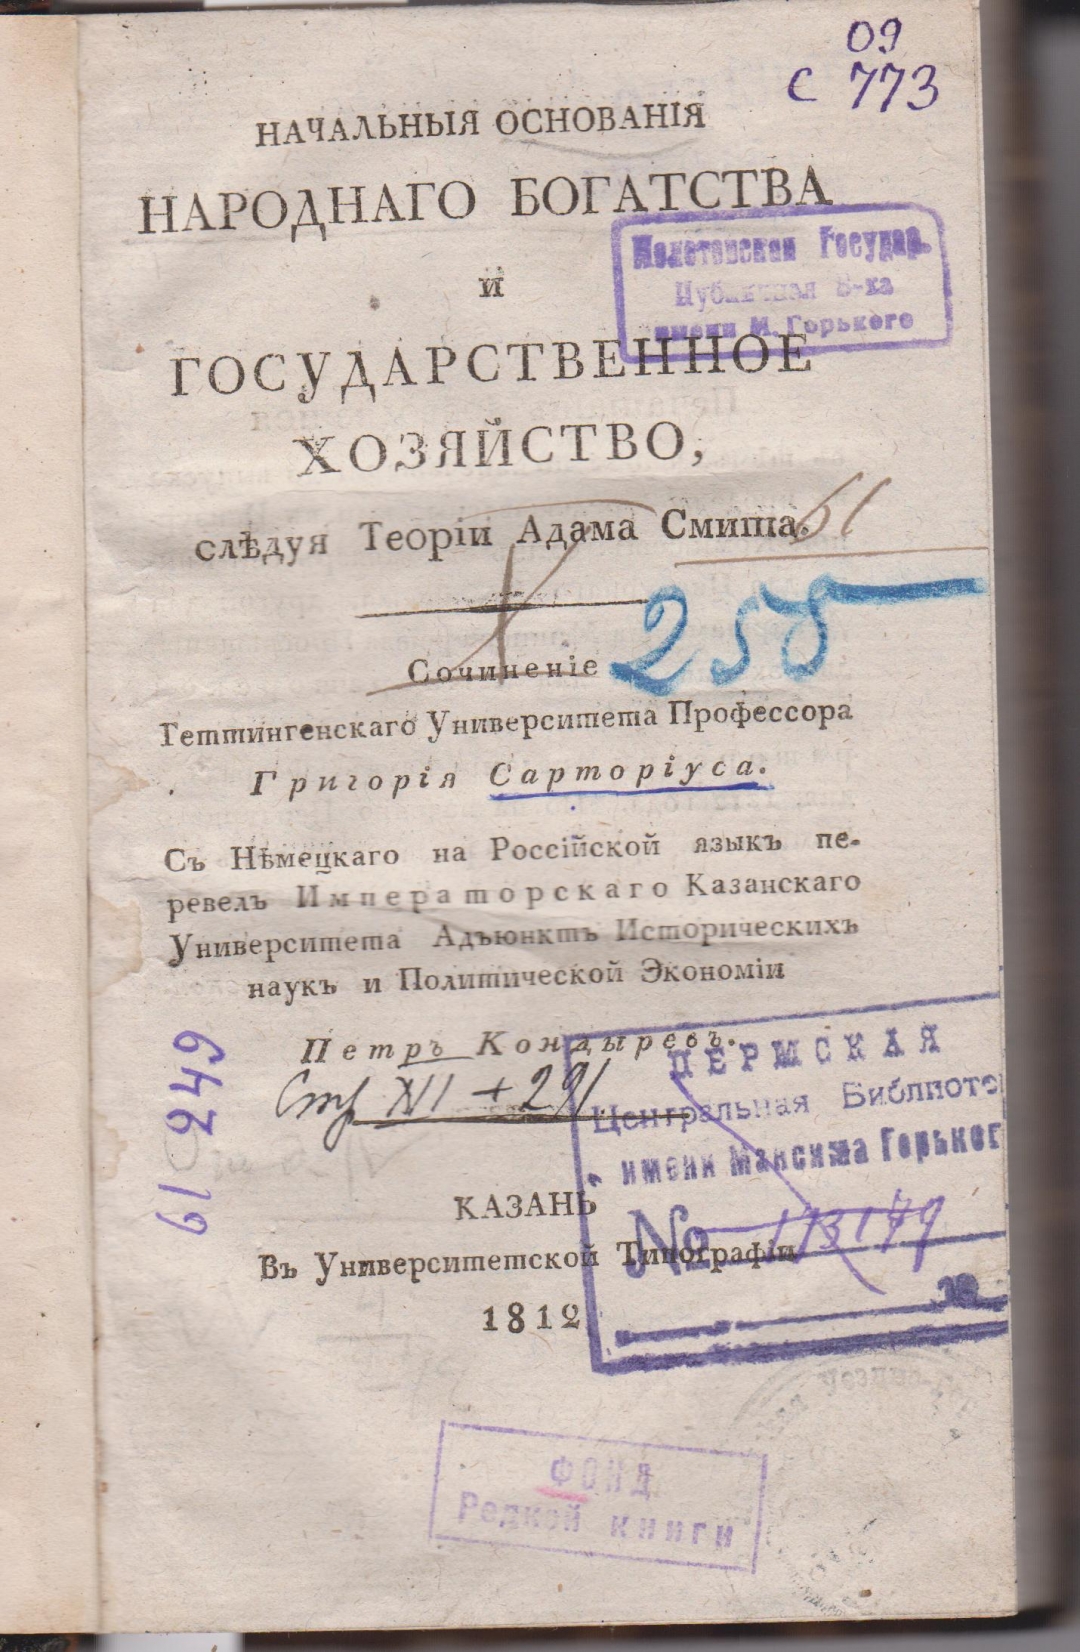 09
С 773
НАЧАЛЬНЫЯ ОСНОВАНІЯ
НАРОДНАГО БОГАТСТВА
И
ГОСУДАРСТВЕННОЕ
ХОЗЯЙСТВО,
слѣдуя Теоріи Адама Смита.
Молотовская Государ.
Публичная Б-ка
имени М. Горького
61
258
Сочиненіе
Геттингенскаго Университета Профессора
Григорія Сарторіуса.
Съ Нѣмецкаго на Россійской языкъ пе-
ревелъ Императорскаго Казанскаго
Университета Адъюнктъ Историческихъ
наукъ и Политической Экономіи
Петръ Кондыревъ.
Стр XII + 291
61249
19
ПЕРМСКАЯ
Центральная Библиоте
имени Максима Горьког
№ 113179
19
КАЗАНЬ
Въ Университетской Типографіи
1812
ФОНД
Редкой книги